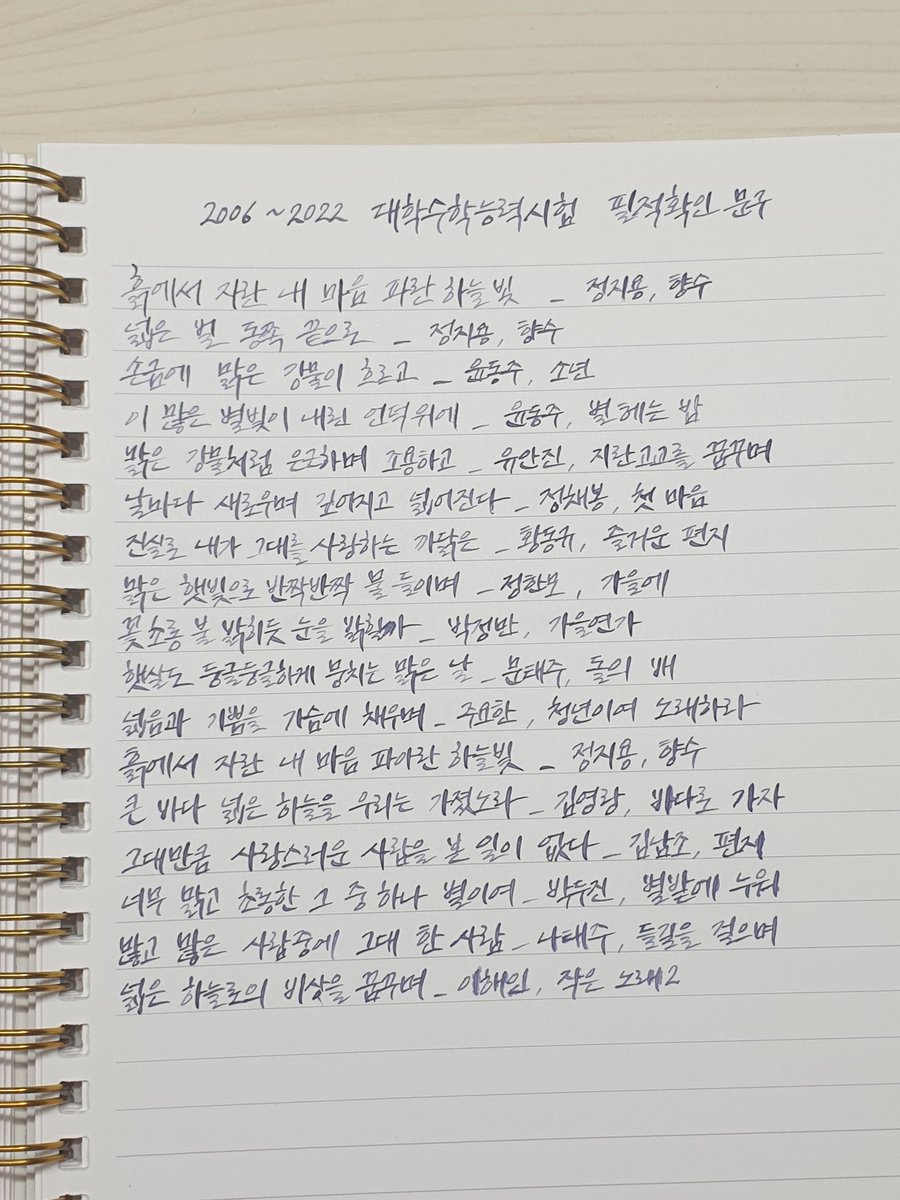 2006 ~ 2022 대학수학능력시험 필적확인 문구
흙에서 자란 내 마음 파란 하늘빛 _ 정지용, 향수
넓은 벌 동쪽 끝으로 _ 정지용, 향수
손금에 맑은 강물이 흐르고 _ 윤동주, 소년
이 많은 별빛이 내린 언덕위에 _ 윤동주, 별 헤는 밤
맑은 강물처럼 은근하며 조용하고 _ 유안진, 지란고교를 꿈꾸며
날마다 새로우며 깊어지고 넓어진다 _ 정채봉, 첫 마음
진실로 내가 그대를 사랑하는 까닭은 _ 황동규, 즐거운 편지
맑은 햇빛으로 반짝반짝 물들이며 _ 정한모, 가을에
꽃초롱 불 밝히듯 눈을 밝힐까 _ 박정만, 가을연가
햇살도 둥글둥글하게 뭉치는 맑은 날 _ 문태주, 돌의 배
넓음과 기쁨을 가슴에 채우며 _ 주요한, 청년이여 노래하라
흙에서 자란 내 마음 파아란 하늘빛 _ 정지용, 향수
큰 바다 넓은 하늘을 우리는 가졌노라 _ 김영랑, 바다로 가자
그대만큼 사랑스러운 사람을 본 일이 없다 _ 김남조, 편지
너무 맑고 초롱한 그 중 하나 별이여 _ 박두진, 별밭에 누워
많고 많은 사람중에 그대 한 사람 _ 나태주, 들길을 걸으며
넓은 하늘로의 비상을 꿈꾸며 _ 이해인, 작은 노래2